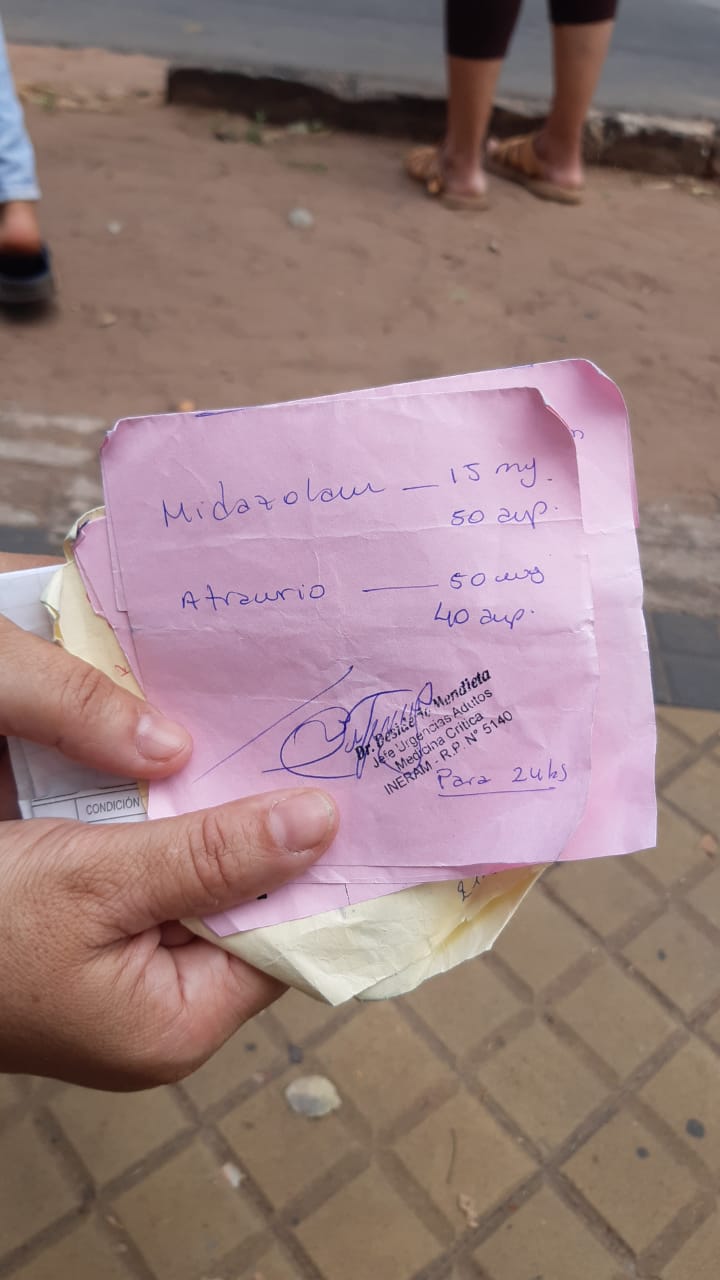 Midazolam — 15 mg.
50 amp.
Atracurio — 50 mg
40 amp.
Dr. Desiderio Mendieta
Jefe Urgencias Adultos
Medicina Crítica
INERAM - R.P. N° 5140
Para 24hs
CONDICIÓN